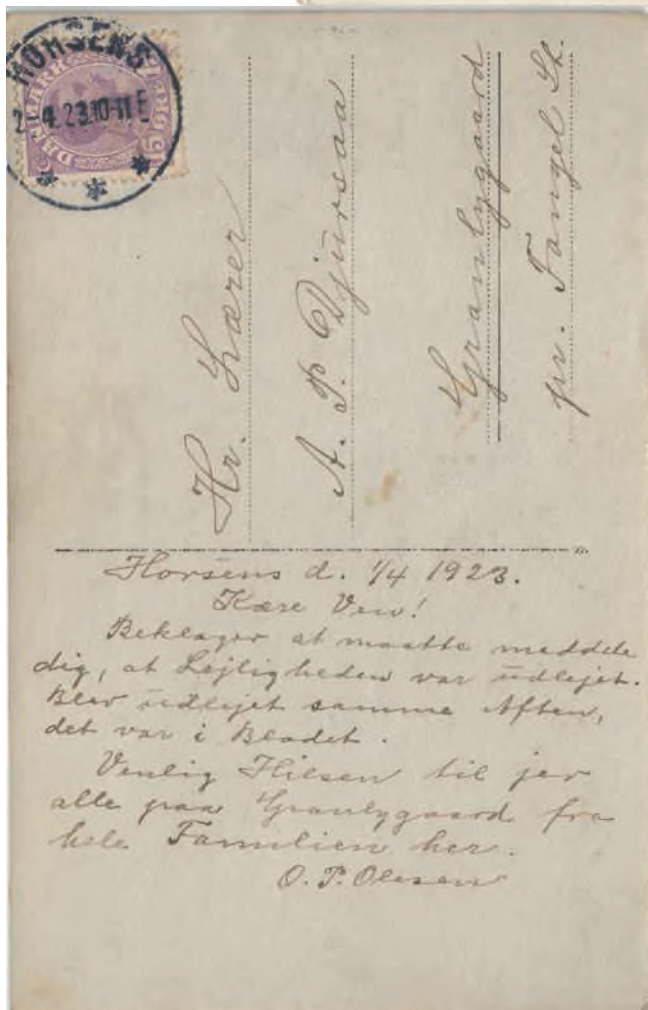 HORSENS
2.4.23.10-11 E
DANMARK
Hr. Lærer
A. P. Djursaa
Granlygaard
pr. Fangel St.
Horsens d. 1/4 1923.
Kære Ven!
Beklager at maatte meddele
dig, at Lejligheden var udlejet.
Blev udlejet samme Aften,
det var i Bladet.
Venlig Hilsen til jer
alle paa Granlygaard fra
hele Familien her.
O. P. Olesen